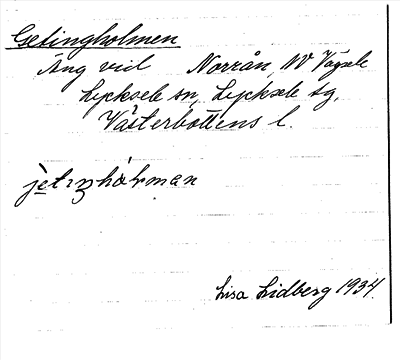 Getingholmen
Äng vid Norrån, NV Vägsele
Lycksele sn, Lycksele tg,
Västerbottens l.
Lisa Lidberg 1934.